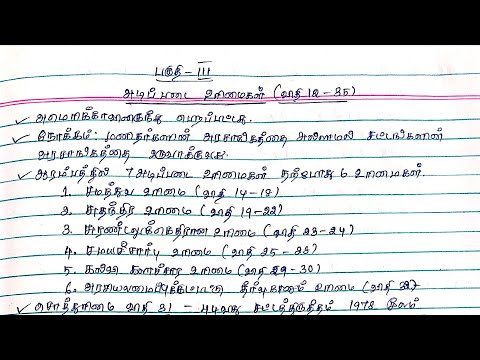 பகுதி - III
அடிப்படை உரிமைகள் (விதி 12 - 35)
✓ அமெரிக்காவிலிருந்து பெறப்பட்டது.
✓ நோக்கம்: மனிதர்களான அரசாங்கத்தை அல்லாமல் சட்டங்களான
அரசாங்கத்தை உருவாக்குவது.
✓ ஆரம்பத்தில் 7 அடிப்படை உரிமைகள் தற்போது 6 உரிமைகள்.
1. சமத்துவ உரிமை (விதி 14 - 18)
2. சுதந்திர உரிமை (விதி 19 - 22)
3. சுரண்டலுக்கெதிரான உரிமை (விதி 23 - 24)
4. சமயச்சார்பு உரிமை (விதி 25 - 28)
5. கல்வி கலாச்சார உரிமை (விதி 29 - 30)
6. அரசியலமைப்புக்குட்பட்டு தீர்வுகாணும் உரிமை (விதி 32)
✓ சொத்துரிமை விதி 31 - 44வது சட்டத்திருத்தம் 1978 இலம்